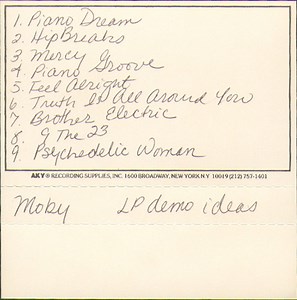 1. Piano Dream
2. Hip Breaks
3. Mercy
4. Piano Groove
5. Feel Alright
6. Truth Is All Around You
7. Brother Electric
8. 9 The 23
9. Psychedelic Woman
AKY® RECORDING SUPPLIES, INC. 1600 BROADWAY, NEW YORK N.Y. 10019 (212) 757-1401
Moby LP demo ideas